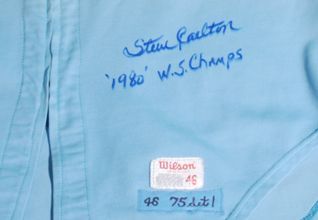 Steve Carlton
'1980' W.S. Champs
Wilson
46
46 75 set 1